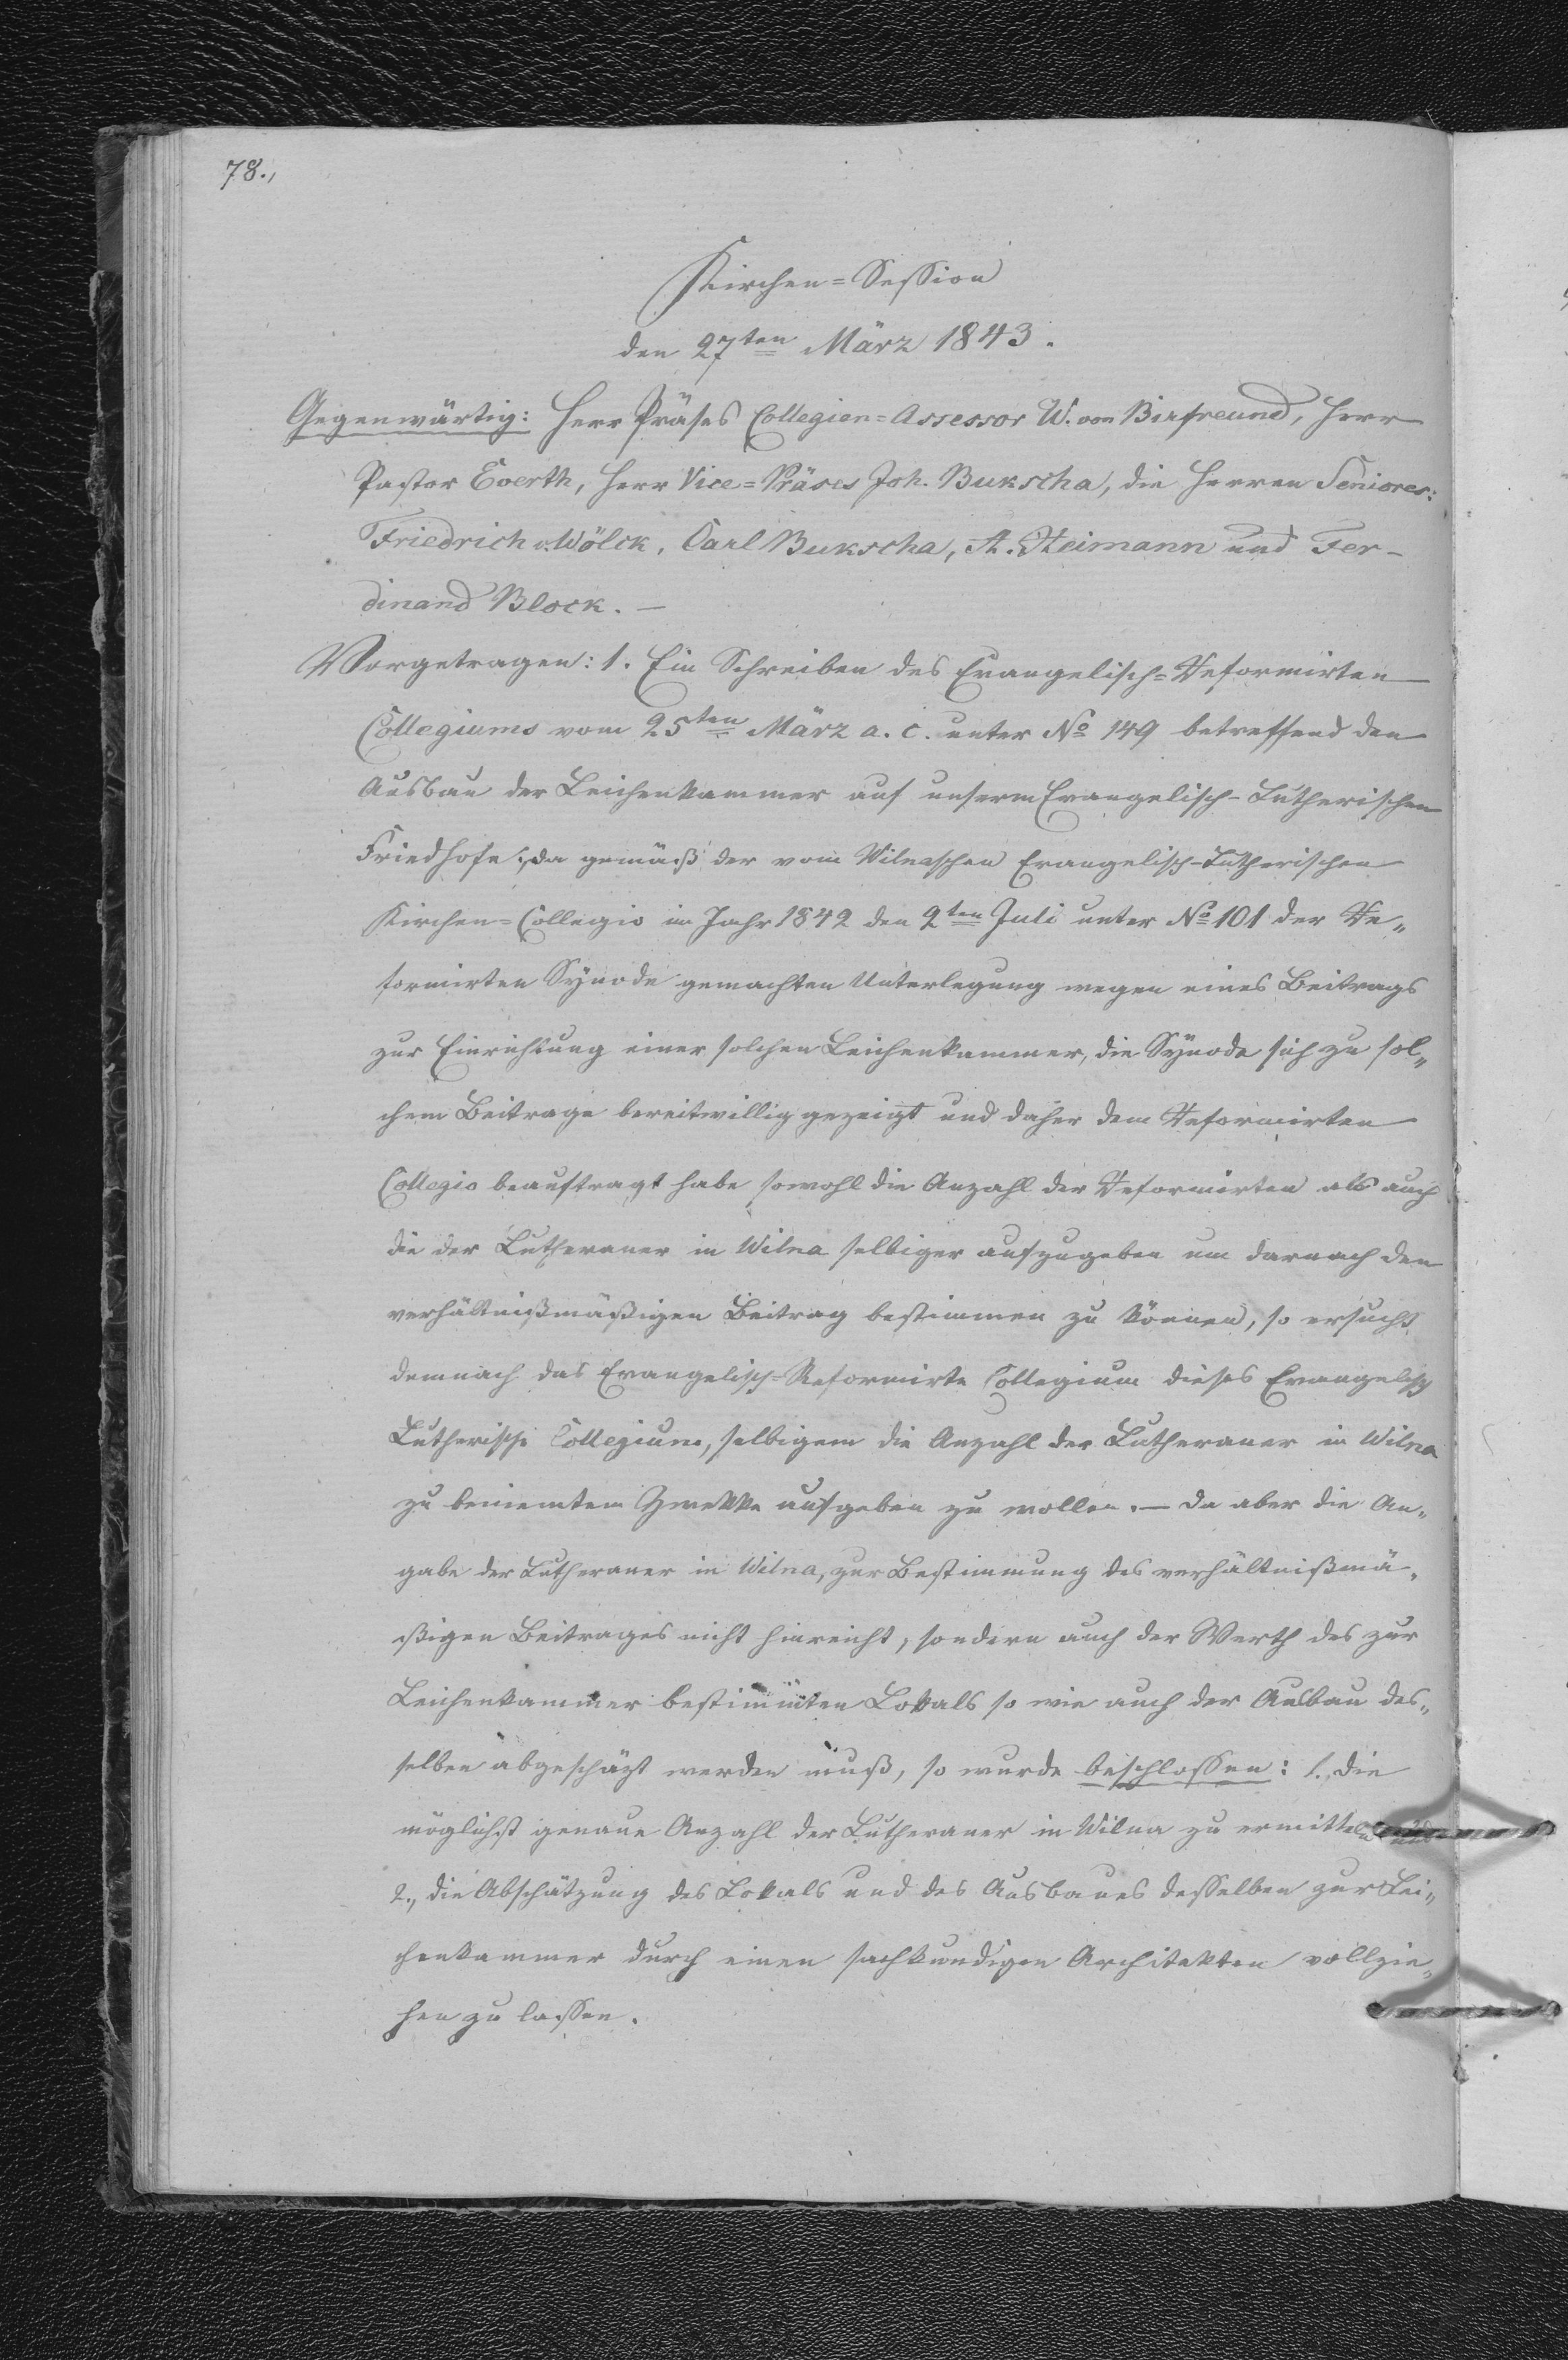 78.,
Kirchen=Session
den 27ten März 1843.
Gegenwärtig: Herr Präses Collegien=Assessor W. von Birfreund, Herr
Pastor Everth, Herr Vice=Präses Joh. Bukscha, die Herren Seniores:
Friedrich v. Wölck, Carl Bukscha, A. Heimann und Fer-
dinand Block. —
Vorgetragen: 1. Ein Schreiben des Evangelisch=Reformirten
Collegiums vom 25ten März a. c. unter No 149 betreffend den
Ausbau der Leichenkammer auf unserm Evangelisch-Lutherischen
Friedhofe; da gemäß der vom Wilnaschen Evangelisch-Lutherischen
Kirchen=Collegio im Jahr 1842 den 2ten Juli unter No 101 der Re„
formirten Synode gemachten Unterlegung wegen eines Beitrags
zur Einrichtung einer solchen Leichenkammer, die Synode sich zu sol„
chem Beitrage bereitwillig gezeigt und daher dem Reformirten
Collegio beauftragt habe sowohl die Anzahl der Reformirten als auch
die der Lutheraner in Wilna selbiger aufzugeben um darnach den
verhältnißmäßigen Beitrag bestimmen zu können, so ersucht
demnach das Evangelisch=Reformirte Collegium dieses Evangelisch
Lutherische Collegium, selbigem die Anzahl der Lutheraner in Wilna
zu beniemtem Zwekke aufgeben zu wollen. — Da aber die An„
gabe der Lutheraner in Wilna, zur Bestimmung des verhältnißmä„
ßigen Beitrages nicht hinreicht, sondern auch der Werth des zur
Leichenkammer bestimmten Lokals so wie auch der Ausbau des„
selben abgeschäzt werden muß, so wurde beschlossen: 1., die
möglichst genaue Anzahl der Lutheraner in Wilna zu ermitteln und
2., die Abschätzung des Lokals und des Ausbaues desselben zur Lei„
chenkammer durch einen sachkundigen Architekten vollzie„
hen zu lassen.